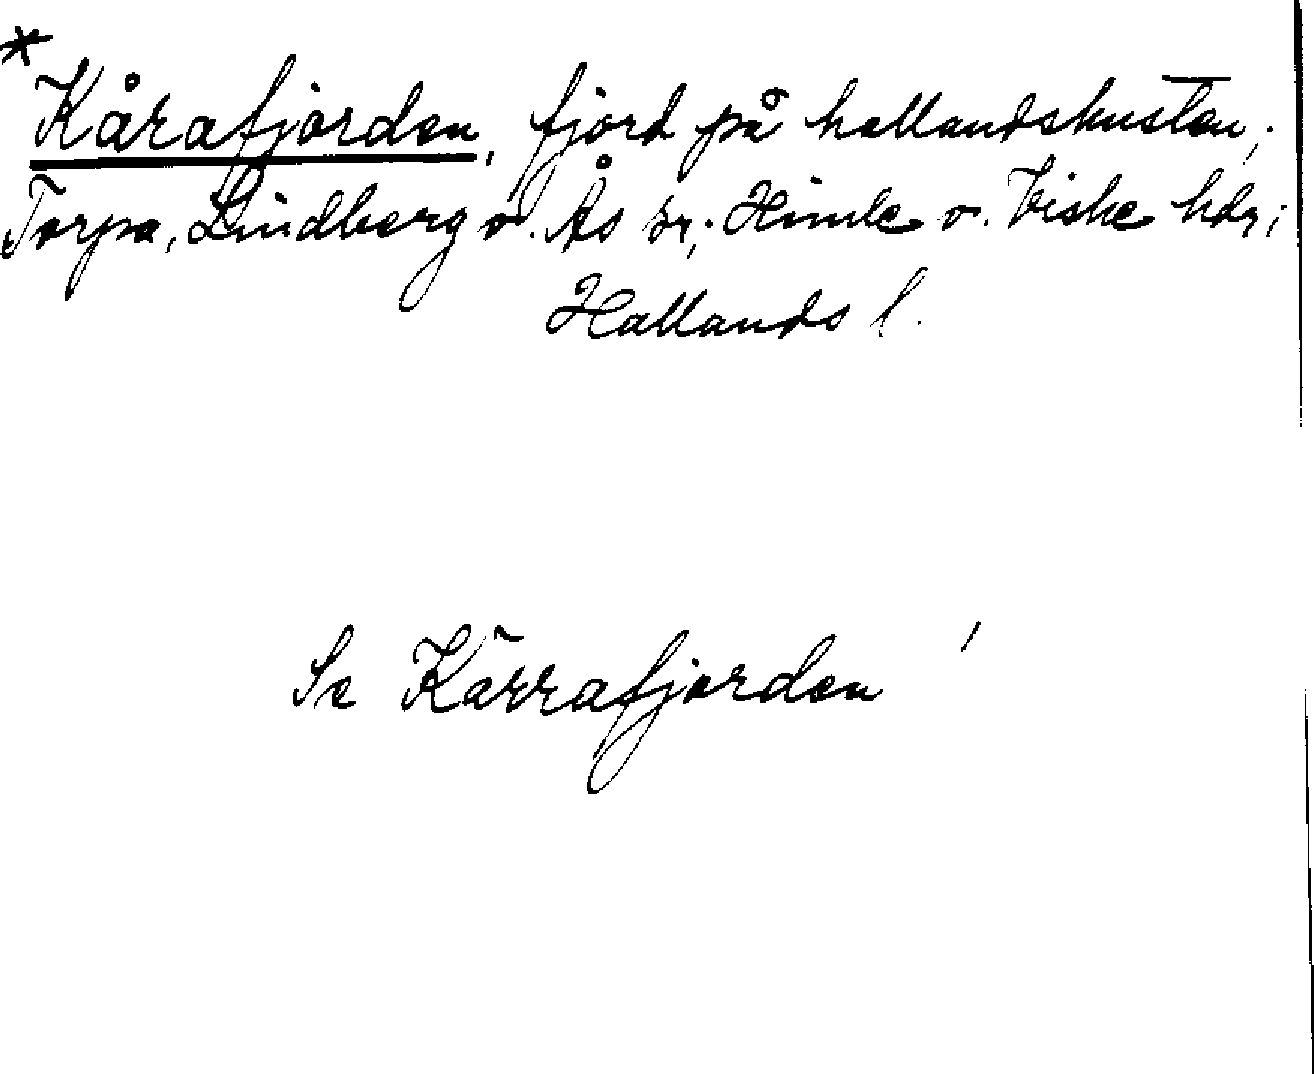 * Kårafjorden, fjord på hallandskusten;
Torpa, Lindberg o. Ås sr; Himle o. Viske hdr;
Hallands l.
Se Kärrafjorden